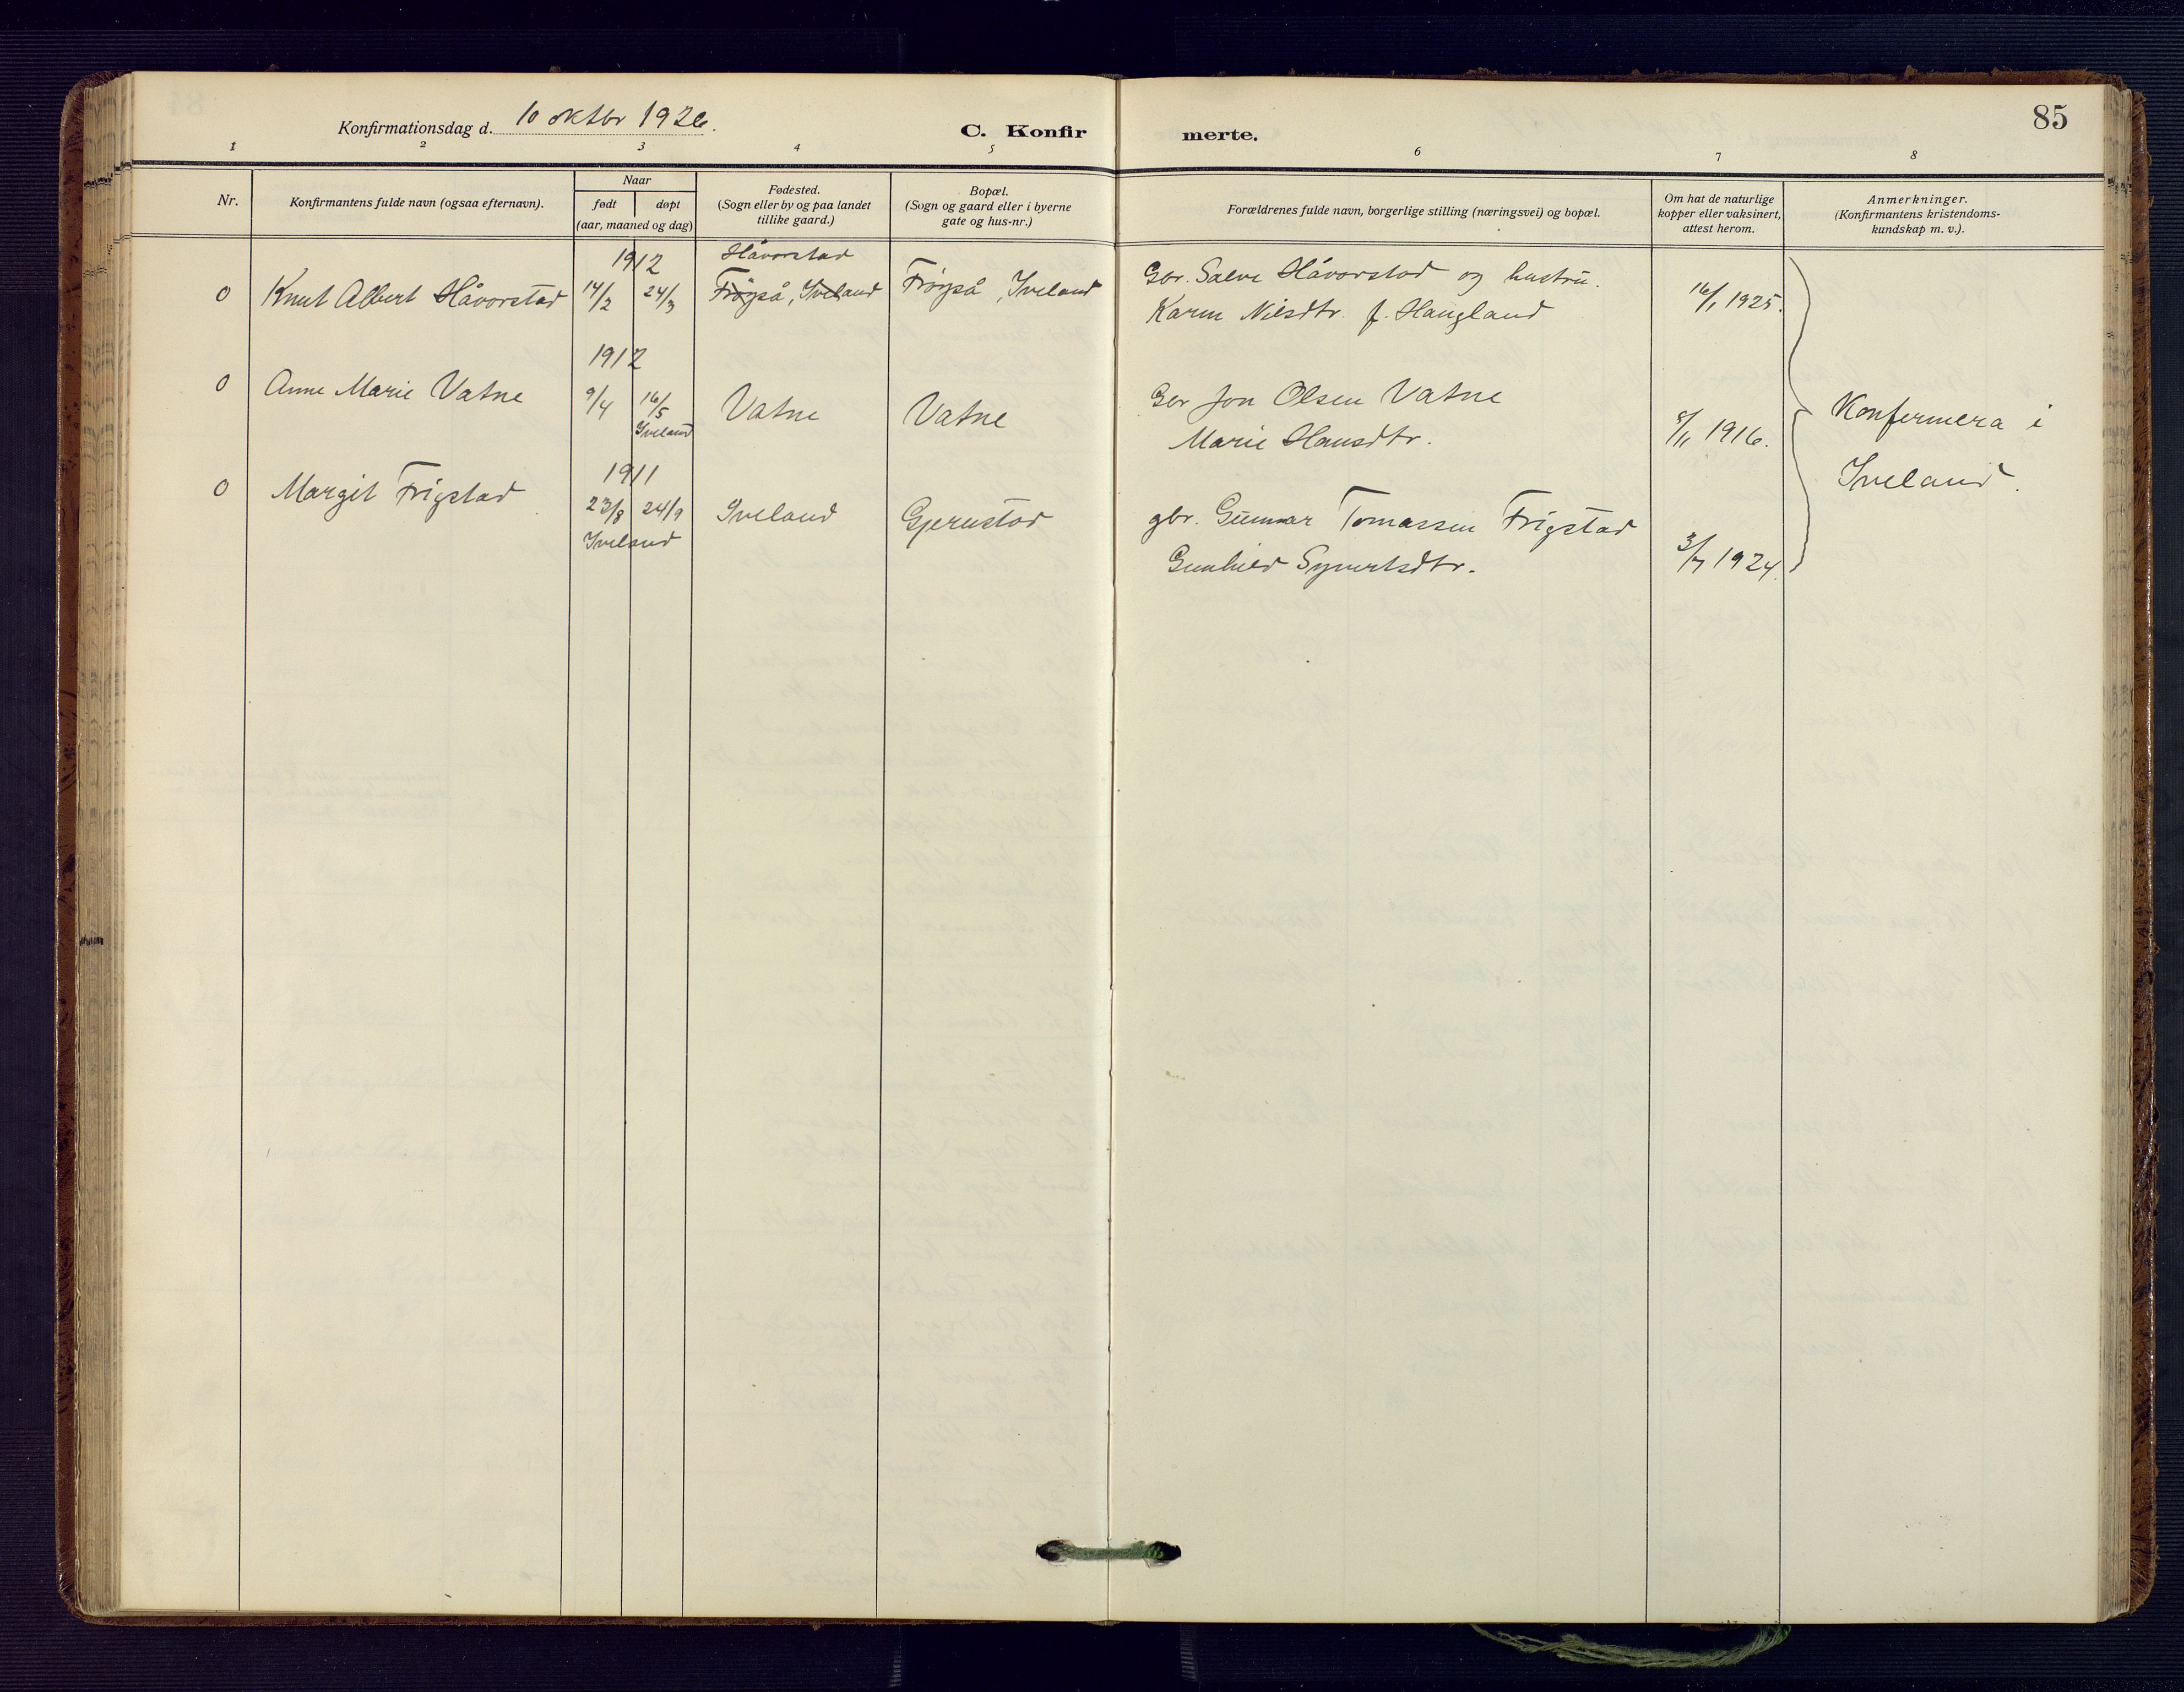 85
Konfirmationsdag d. 10 oktbr 1926.
C. Konfirmerte.
1 2 3 4 5 6 7 8
Nr.
Konfirmantens fulde navn (ogsaa efternavn).
Naar
født døpt
(aar, maaned og dag)
Fødested.
(Sogn eller by og paa landet
tillike gaard.)
Bopæl.
(Sogn og gaard eller i byerne
gate og hus-nr.)
Forældrenes fulde navn, borgerlige stilling (næringsvei) og bopæl.
Om hat de naturlige
kopper eller vaksinert,
attest herom.
Anmerkninger.
(Konfirmantens kristendoms-
kundskap m. v.).
1912 Håvorstad
0 Knut Albert Håvorstad 14/2 24/3 Frøyså, Iveland Frøyså, Iveland
Gbr. Salve Håvorstad og hustru.
Karen Nilsdtr. f. Haugland
16/1 1925.
1912
0 Anne Marie Vatne 9/4 16/5 Vatne Vatne
Iveland
Gbr Jon Olsen Vatne
Marie Hansdtr.
8/11 1916.
1911
0 Margit Frigstad 23/8 24/9 Iveland Gjerustad
Iveland
gbr. Gunnar Tomassen Frigstad
Gunhild Syvertsdtr.
3/7 1924.
Konfermera i
Iveland.